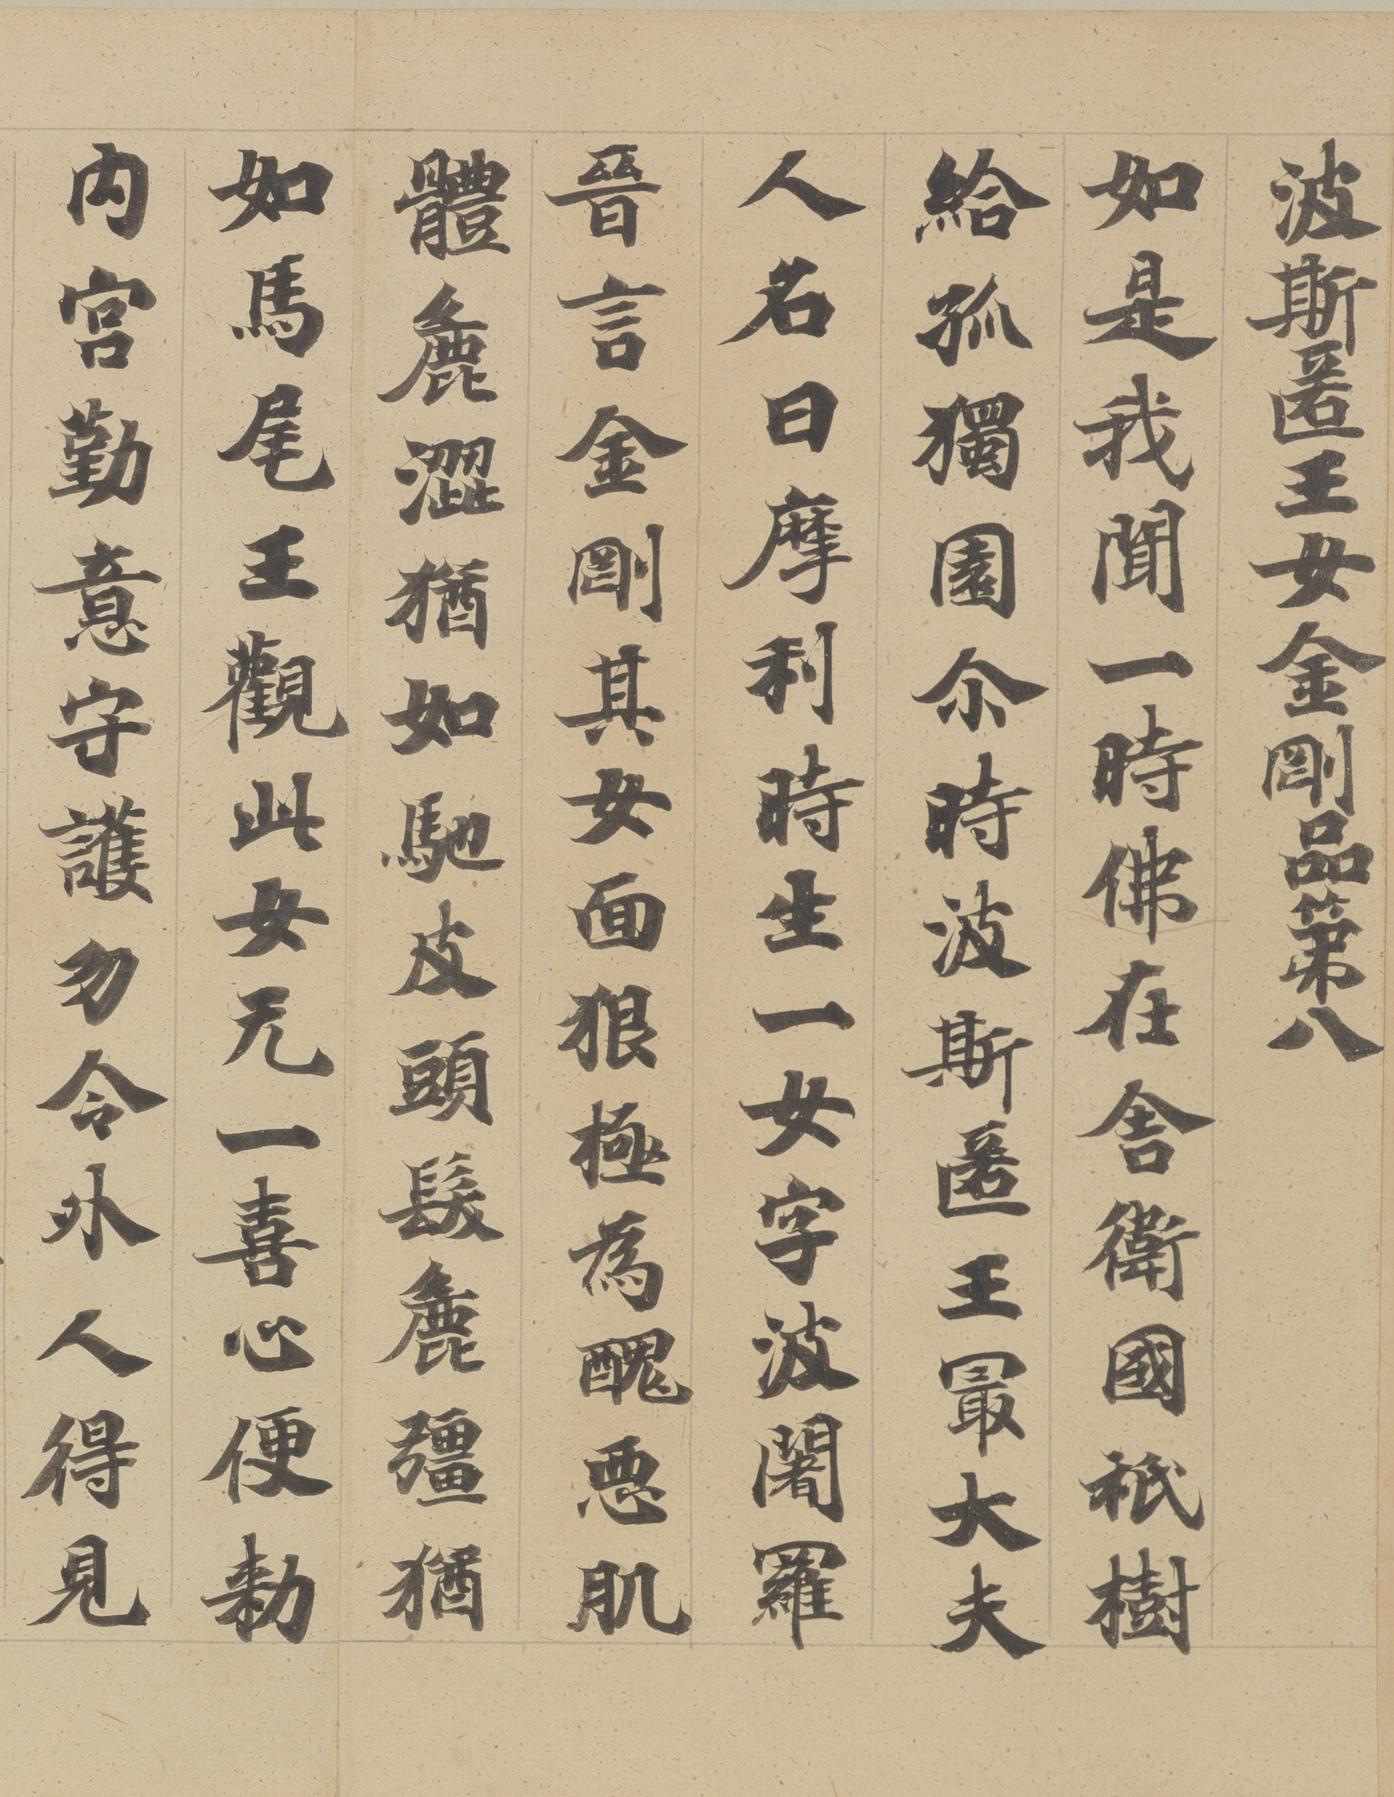 波斯匿王女金剛品第八
如是我聞一時佛在舍衛國祇樹
給孤獨園尒時波斯匿王最大夫
人名曰摩利時生一女字波闍羅
晉言金剛其女面狠極為醜惡肌
體麁澀猶如馳皮頭髮麁彊猶
如馬尾王觀此女无一喜心便勑
内宮勤意守護勿令外人得見